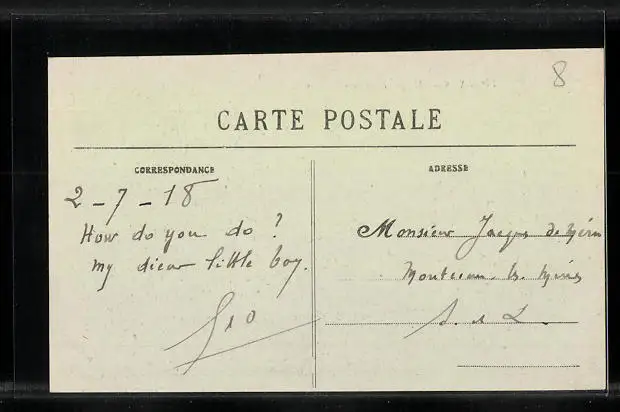 8
CARTE POSTALE
CORRESPONDANCE
2-7-18
How do you do ?
my diear little boy.
Gio
ADRESSE
Monsieur Jacques de
Montceau les Mines
S. et L.